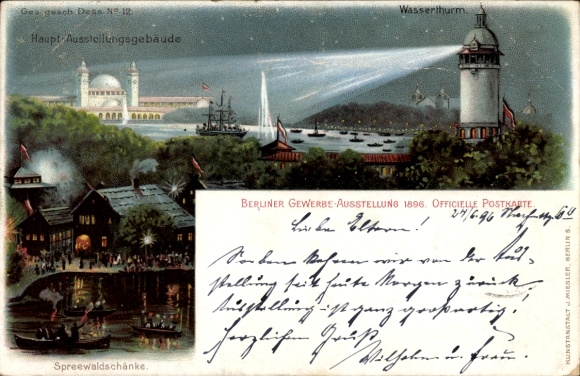 Ges. gesch. Dess. No 12.
Wasserthurm.
Haupt-Ausstellungsgebäude
BERLINER GEWERBE-AUSSTELLUNG 1896. OFFICIELLE POSTKARTE
24/6.96
Liebe Eltern!
Soeben kehren wir von der Aus-
stellung seit heute Morgen zurück.
Ausstellung ist ganz großartig!
Herzlichen Gruß
Wilhelm u. Frau.
Spreewaldschänke.
KUNSTANSTALT J. MIESLER, BERLIN S.